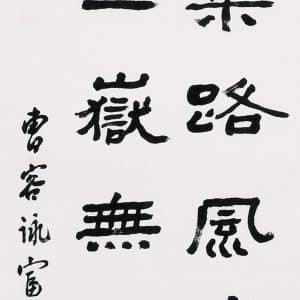 路風
一嶽無
曹容詠富